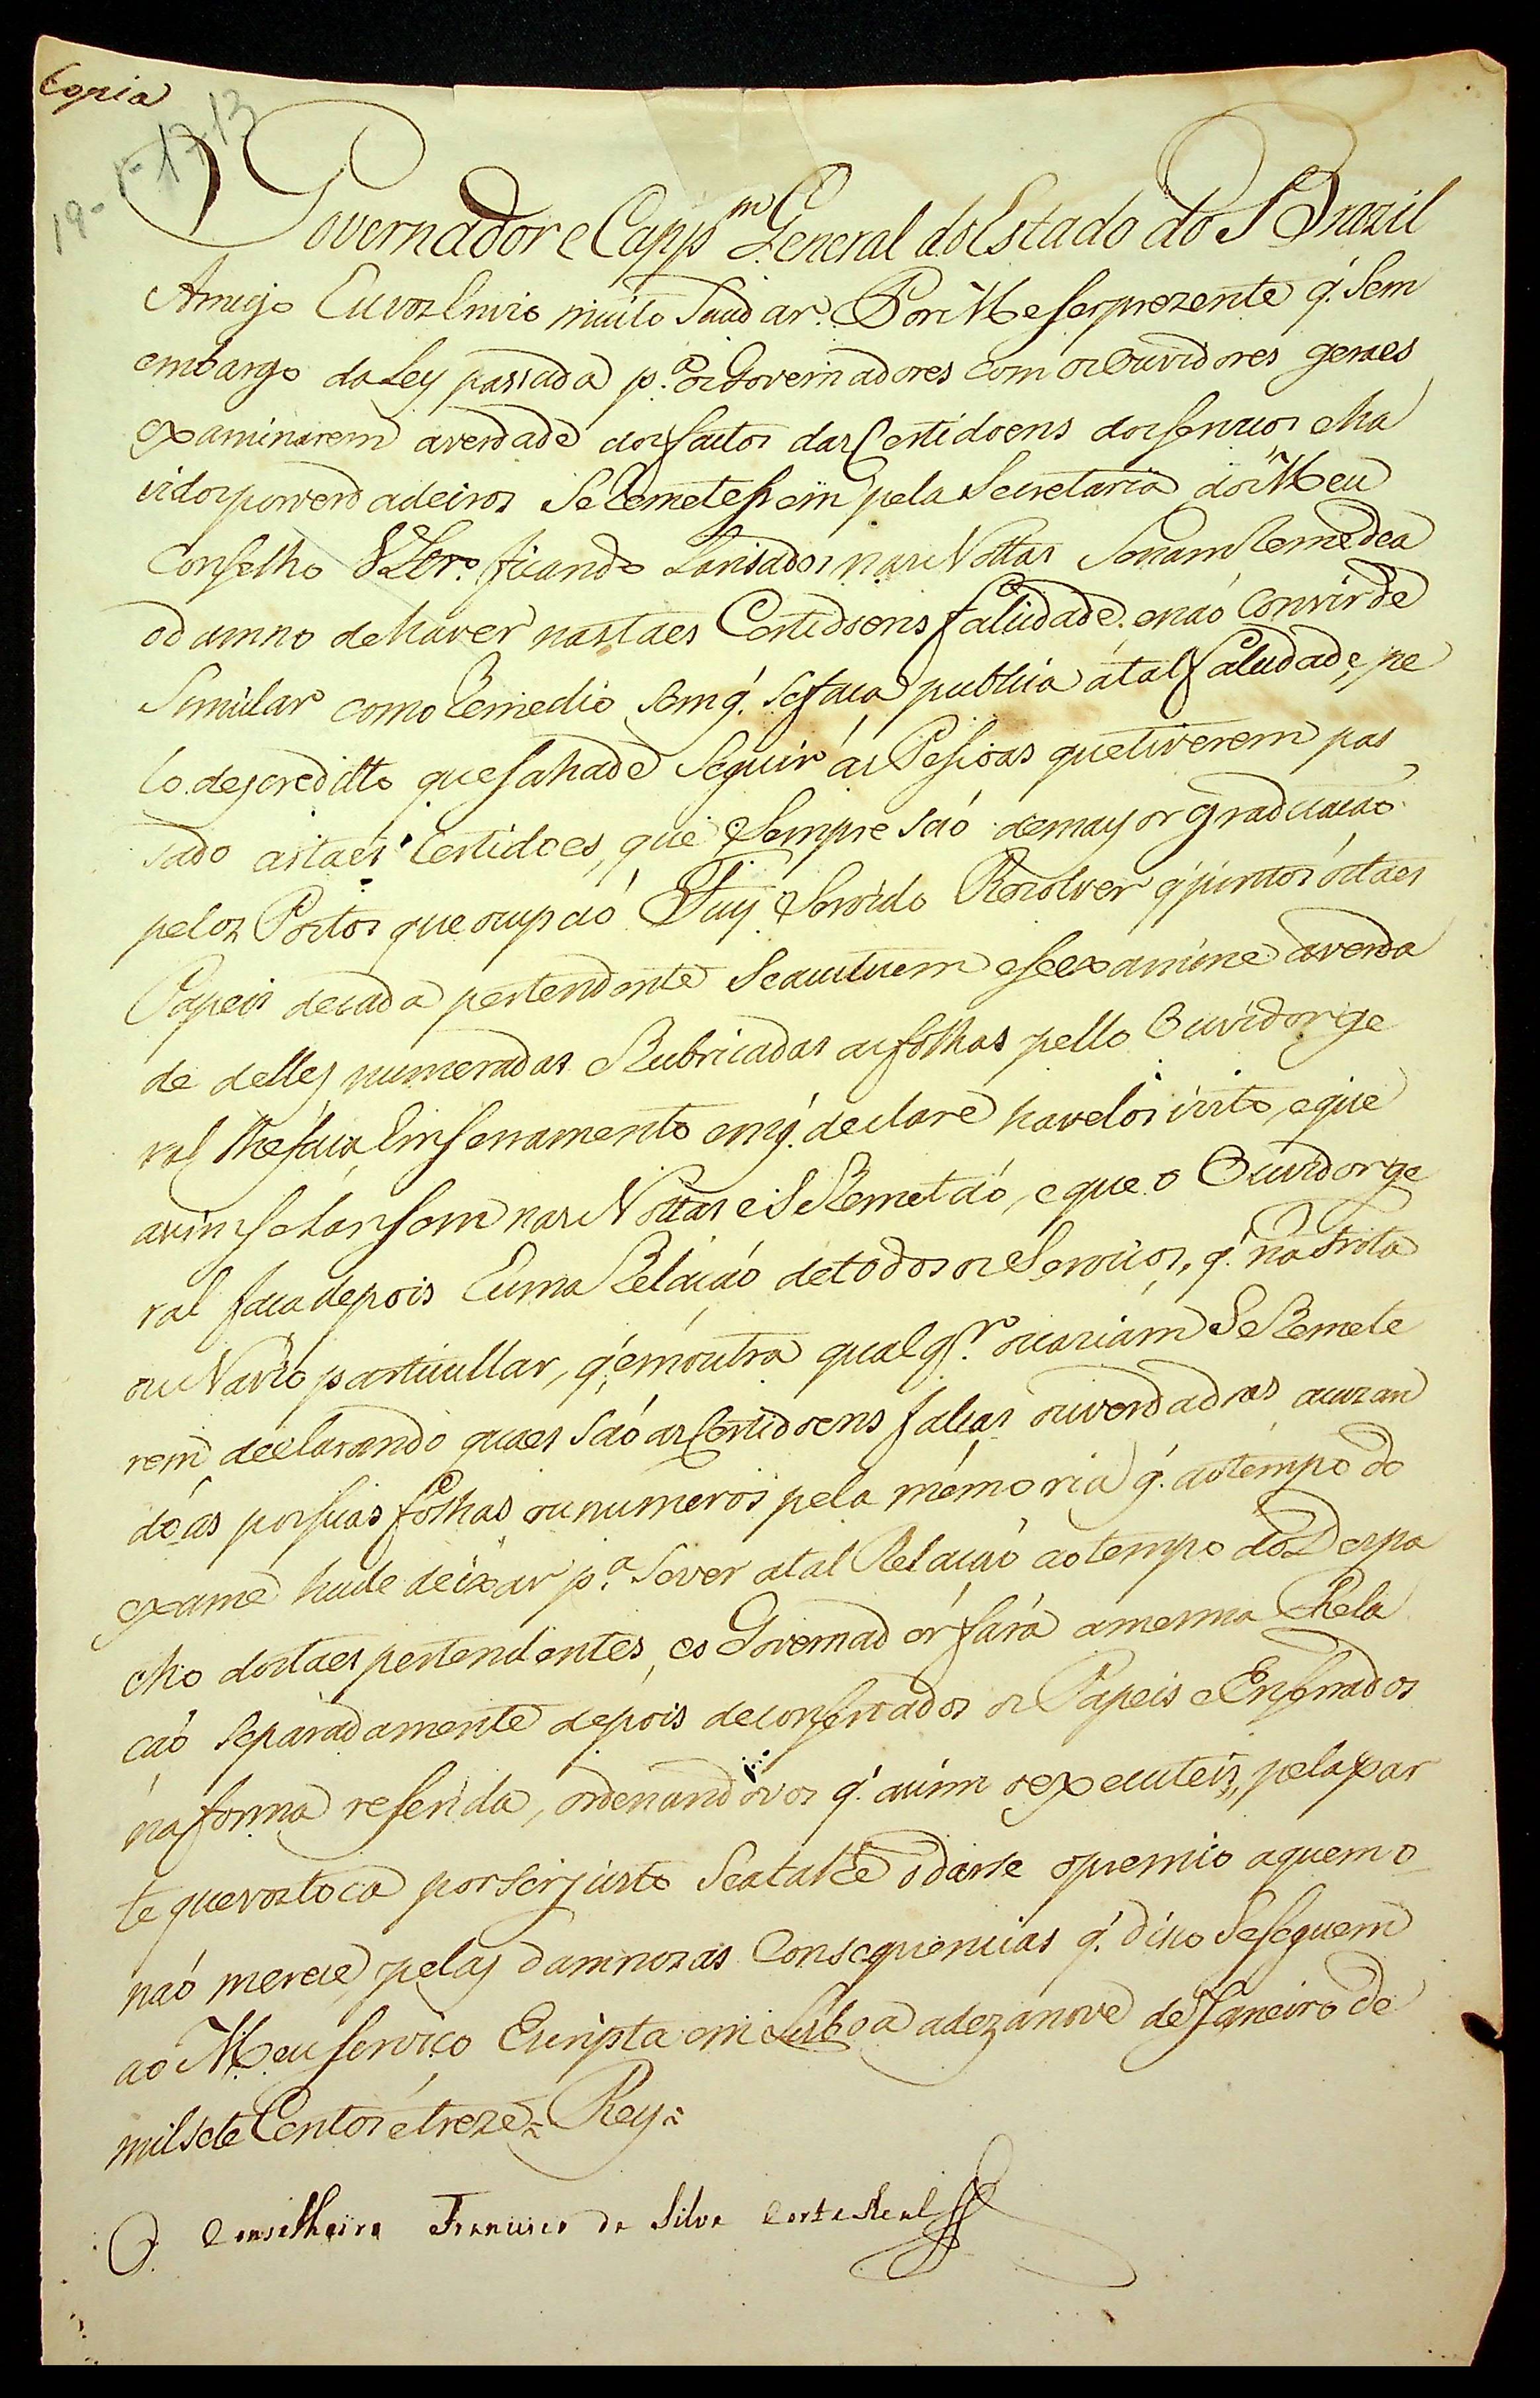 Copia
19-1-1713
Governador e Capp.m General do Estado do Brazil
Amigo Eu voz Envio muito Saudar. Por Me ser prezente q. Sem
embargo da Ley passada p.a os Governadores com os Ouvidores geraes
examinarem a verdade dos factos das Certidoens dos servicos e ha
vidos por verdadeiros Se Remetessem pela Secretaria do Meu
Conselho Vltr.o ficando Lansados nas Nottas Se nam Remedea
o damno de haver nas taes Certidoens falcidade. e naó Convir de
Simular como Remedio sem q. se faca publica á tal falcidade, pe
lo descreditto que se ha de Seguir ás Pessoas que tiverem pas
sado as taes Certidoes, que Sempre saó de mayor graduacaó
pelos Postos que ocupaó Fuy Servido Rezolver q. juntos os taes
Papeis de cada pertendente Se autuem e se examine a verda
de delles numeradas Rubricadas as folhas pello Ouvidor ge
ral lhe faca Emserramento em q. declare havelos visto, e que
asim se Lansem nas Nottas e Se Remetaó, e que o Ouvidor ge
ral faca depois Euma Relacaó de todos os Servicos, q. na frota
ou Navio particullar, q. em outra qualq.r ocaziam Se Remete
rem declarando quaes saó as Certidoens falcas ou verdad.ras acuzan
do as por suas folhas ou numeros pela memoria q. ao tempo do
exame hade deixar p.a Se ver a tal Relacaó ao tempo do Despa
cho dos taes pertendentes, e o Governador fará a mesma Rela
caó Separadamente depois de consertados os Papeis e Enserrados
na forma referida, ordenandovos q. asim o executeis, pela par
te que vos toca por ser justo Se atalhe o darse o premio a quem o
naó merece, pelas damnozas Consequencias q. disso Se seguem
ao Meu servico Escripta em Lisboa a dezanove de Janeiro de
mil sete Centos é treze = Rey =
O Conselheiro Francisco da Silva Corte Real